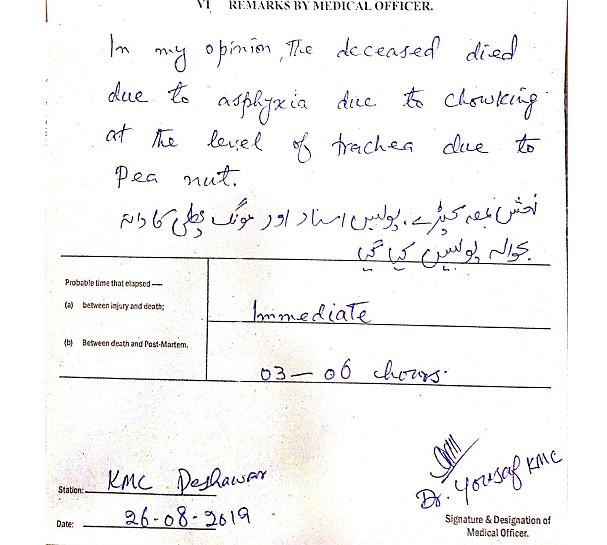 VI REMARKS BY MEDICAL OFFICER.
In my opinion, The deceased died
due to asphyxia due to chowking
at the level of trachea due to
Pea nut.
نعش بمعہ کپڑے، پولیس اسناد اور مونگ پھلی کا دانہ
حوالہ پولیس کیا گیا
Probable time that elapsed —
(a) between injury and death; Immediate
(b) Between death and Post-Martem. 03 — 06 hours.
Station: KMC Peshawar
Date: 26-08-2019
Dr. Yousaf KMC
Signature & Designation of
Medical Officer.